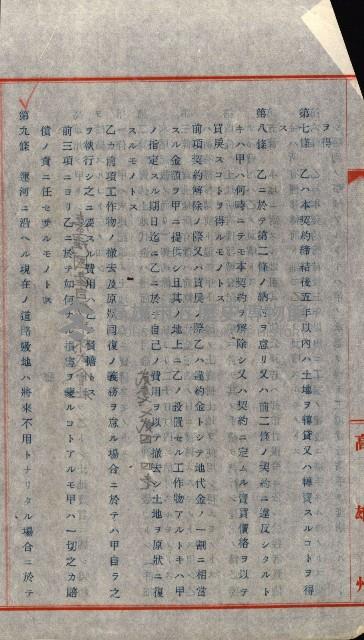 ヲ得
第七條　乙ハ本契約締結後五年以內ハ土地ヲ轉貸又ハ轉賣スルコトヲ得
ス
第八條　乙ニ於テ第二條ノ納付ヲ怠リ又ハ前二條ノ契約ニ違反シタルト
キハ甲ハ何時ニテモ本契約ヲ解除シ又ハ契約ニ定ムル賣買價格ヲ以テ
買戾スコトヲ得ルモノトス
前項契約解除ノ際又ハ買戾ノ際乙ハ違約金トシテ地代金ノ一割ニ相當
スル金額ヲ甲ニ提供シ且其ノ地上ニ乙ノ設置セル工作物アルトキハ甲
ノ指定スル期日迄ニ乙ニ於テ自己ノ費用ヲ以テ撤去シ土地ヲ原狀ニ復
スルモノトス
乙カ前項工作物ノ撤去及原狀回復ノ義務ヲ怠ル場合ニ於テハ甲自ラ之
ヲ執行シ之ニ要スル費用ハ乙ノ負擔トス
前三項ニヨリ乙ニ於テ如何ナル損害ヲ蒙ルコトアルモ甲ハ一切之カ賠
償ノ責ニ任セサルモノトス
第九條　運河ニ沿ヘル現在ノ道路敷地ハ將來不用トナリタル場合ニ於テ
高雄州